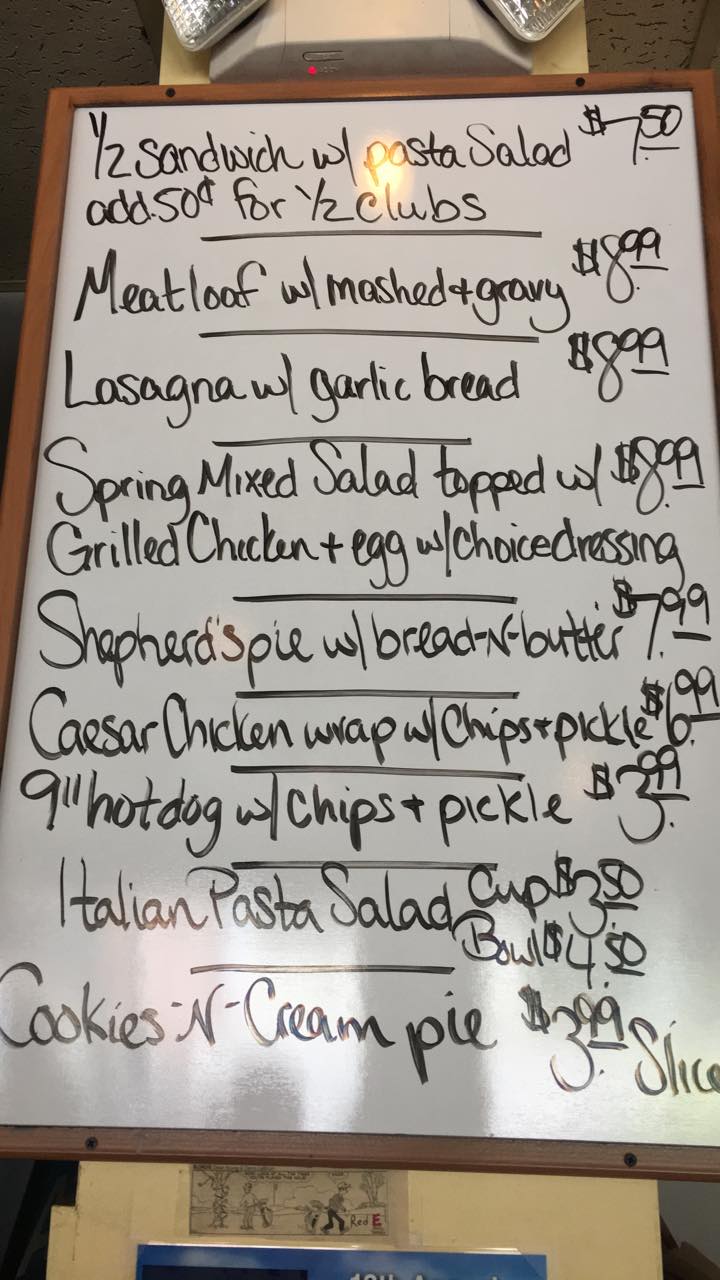 1/2 Sandwich w/ pasta Salad $7.50
add .50¢ for 1/2 Clubs
Meatloaf w/ mashed + gravy $8.99
Lasagna w/ garlic bread $8.99
Spring Mixed Salad topped w/ $8.99
Grilled Chicken + egg w/ choice dressing
Shepherd's pie w/ bread-N-butter $7.99
Caesar Chicken wrap w/ Chips + pickle $6.99
9" hotdog w/ Chips + pickle $3.99
Italian Pasta Salad Cup $3.50
Bowl $4.50
Cookies-N-Cream pie $3.99 Slice
Red E